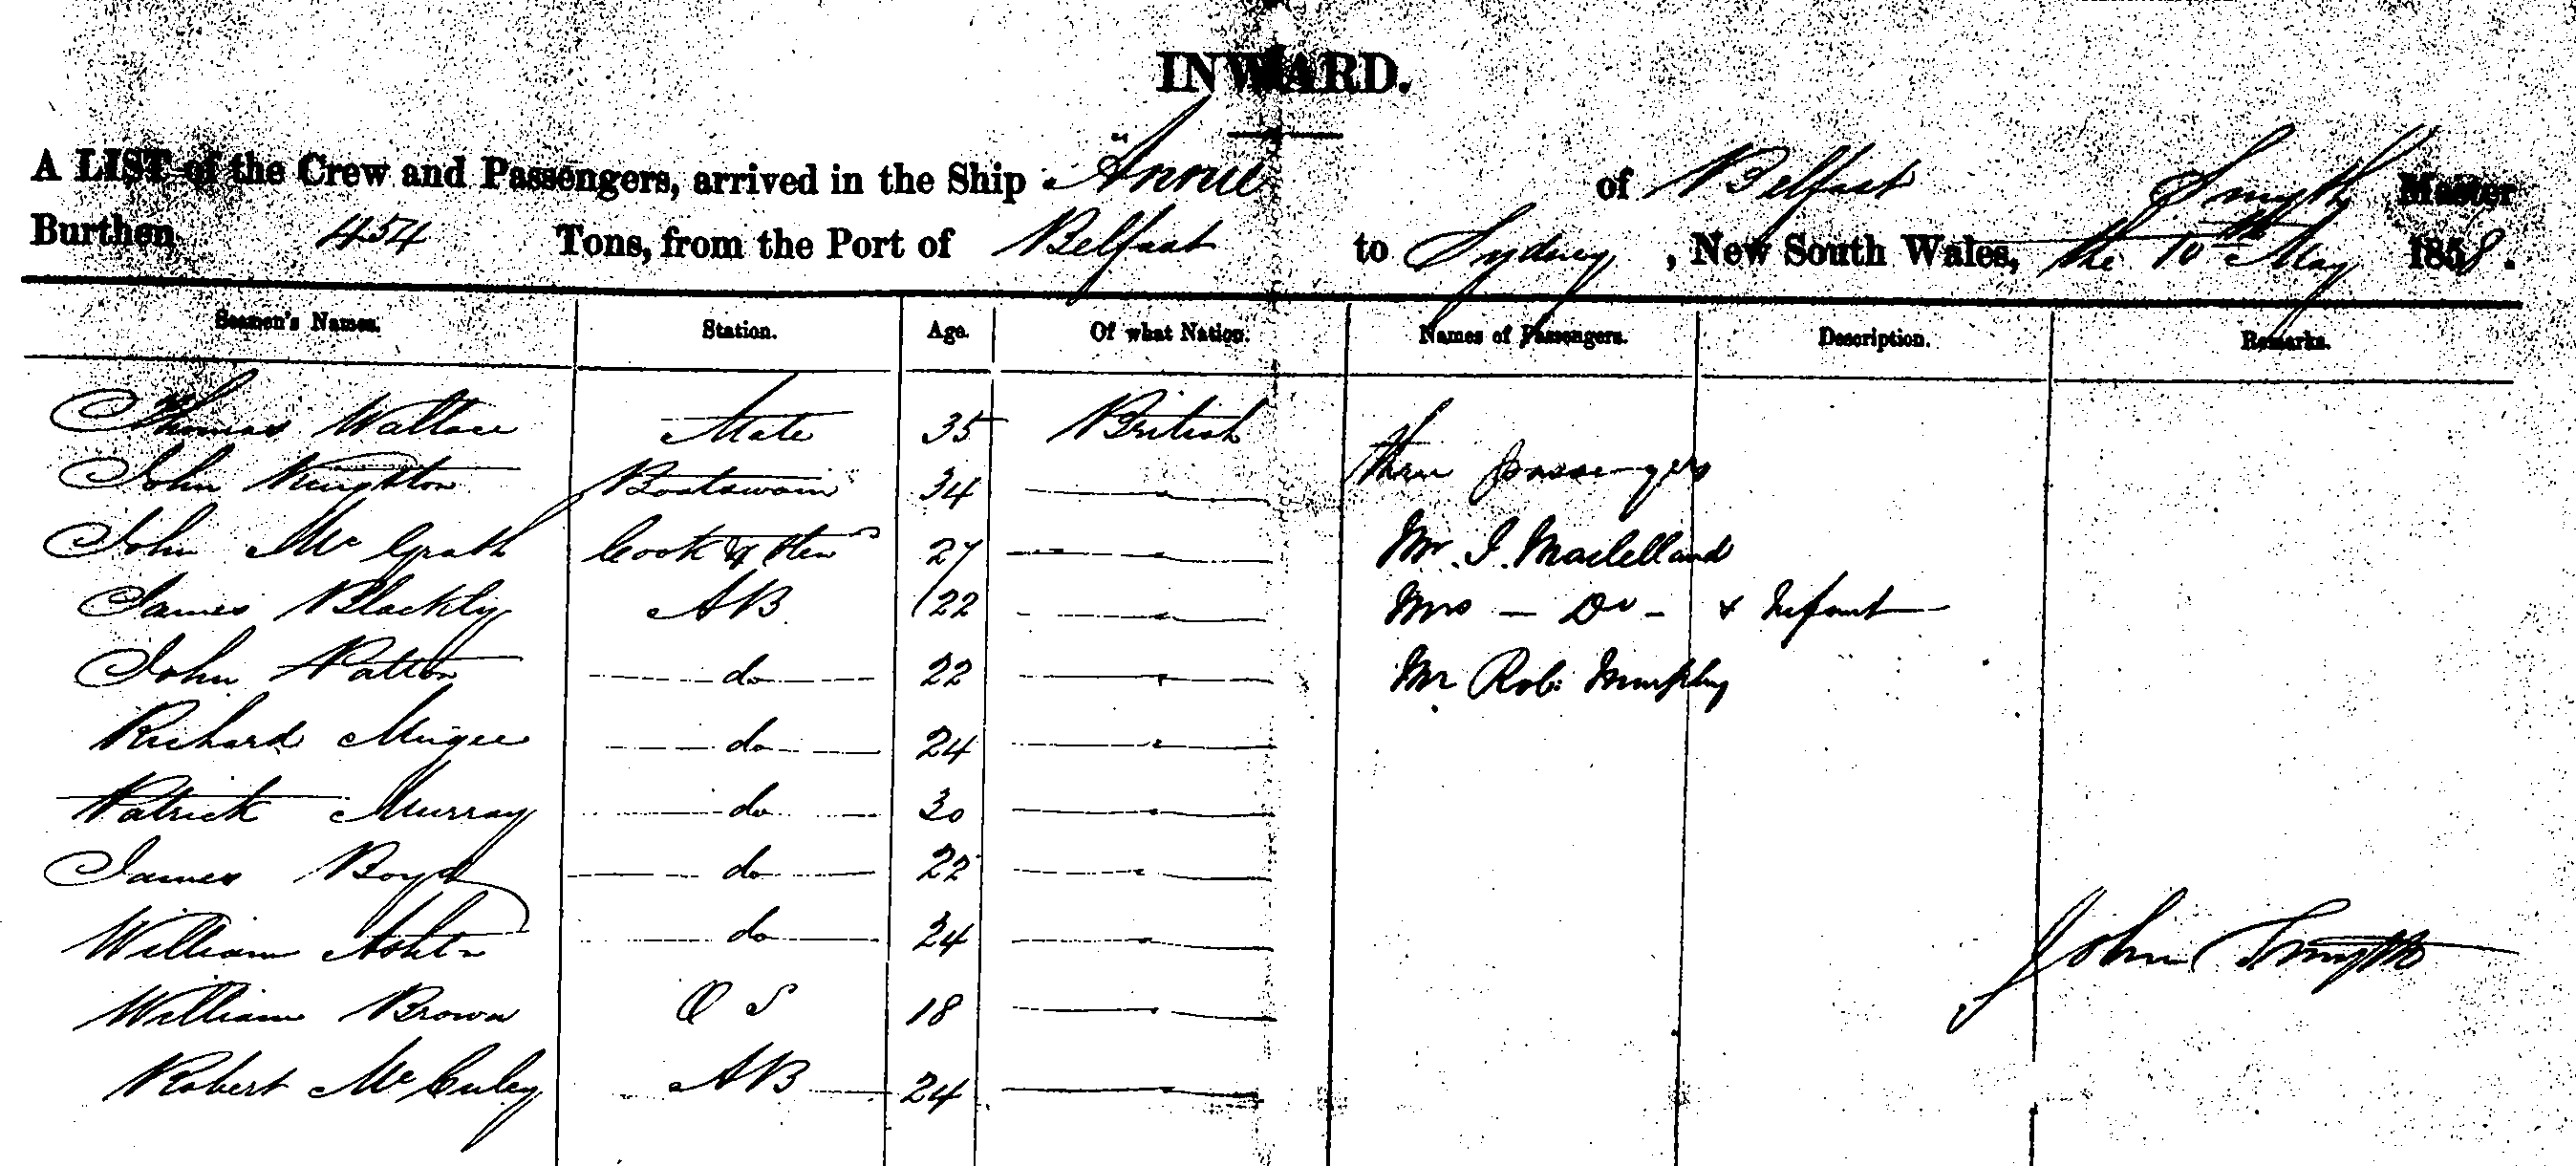 INWARD.
A LIST of the Crew and Passengers, arrived in the Ship Annie of Belfast Smyth Master
Burthen 454 Tons, from the Port of Belfast to Sydney, New South Wales, the 10th May 1858.
Seamen's Names. Station. Age. Of what Nation. Names of Passengers. Description. Remarks.
Thomas Wallace Mate 35 British
John 34 Boatswain three passengers
John Mc Grath Cook & Stew 27 Mr. J. Maclelland
James Blackly AB 22 Mrs - Do - & Infant
John Patton do 22 Mr Rob: Murphy
Richard Magee do 24
Patrick Murray do 30
James Boyd do 22
William Ashton do 24 John Smyth
William Brown O S 18
Robert Mc AB 24